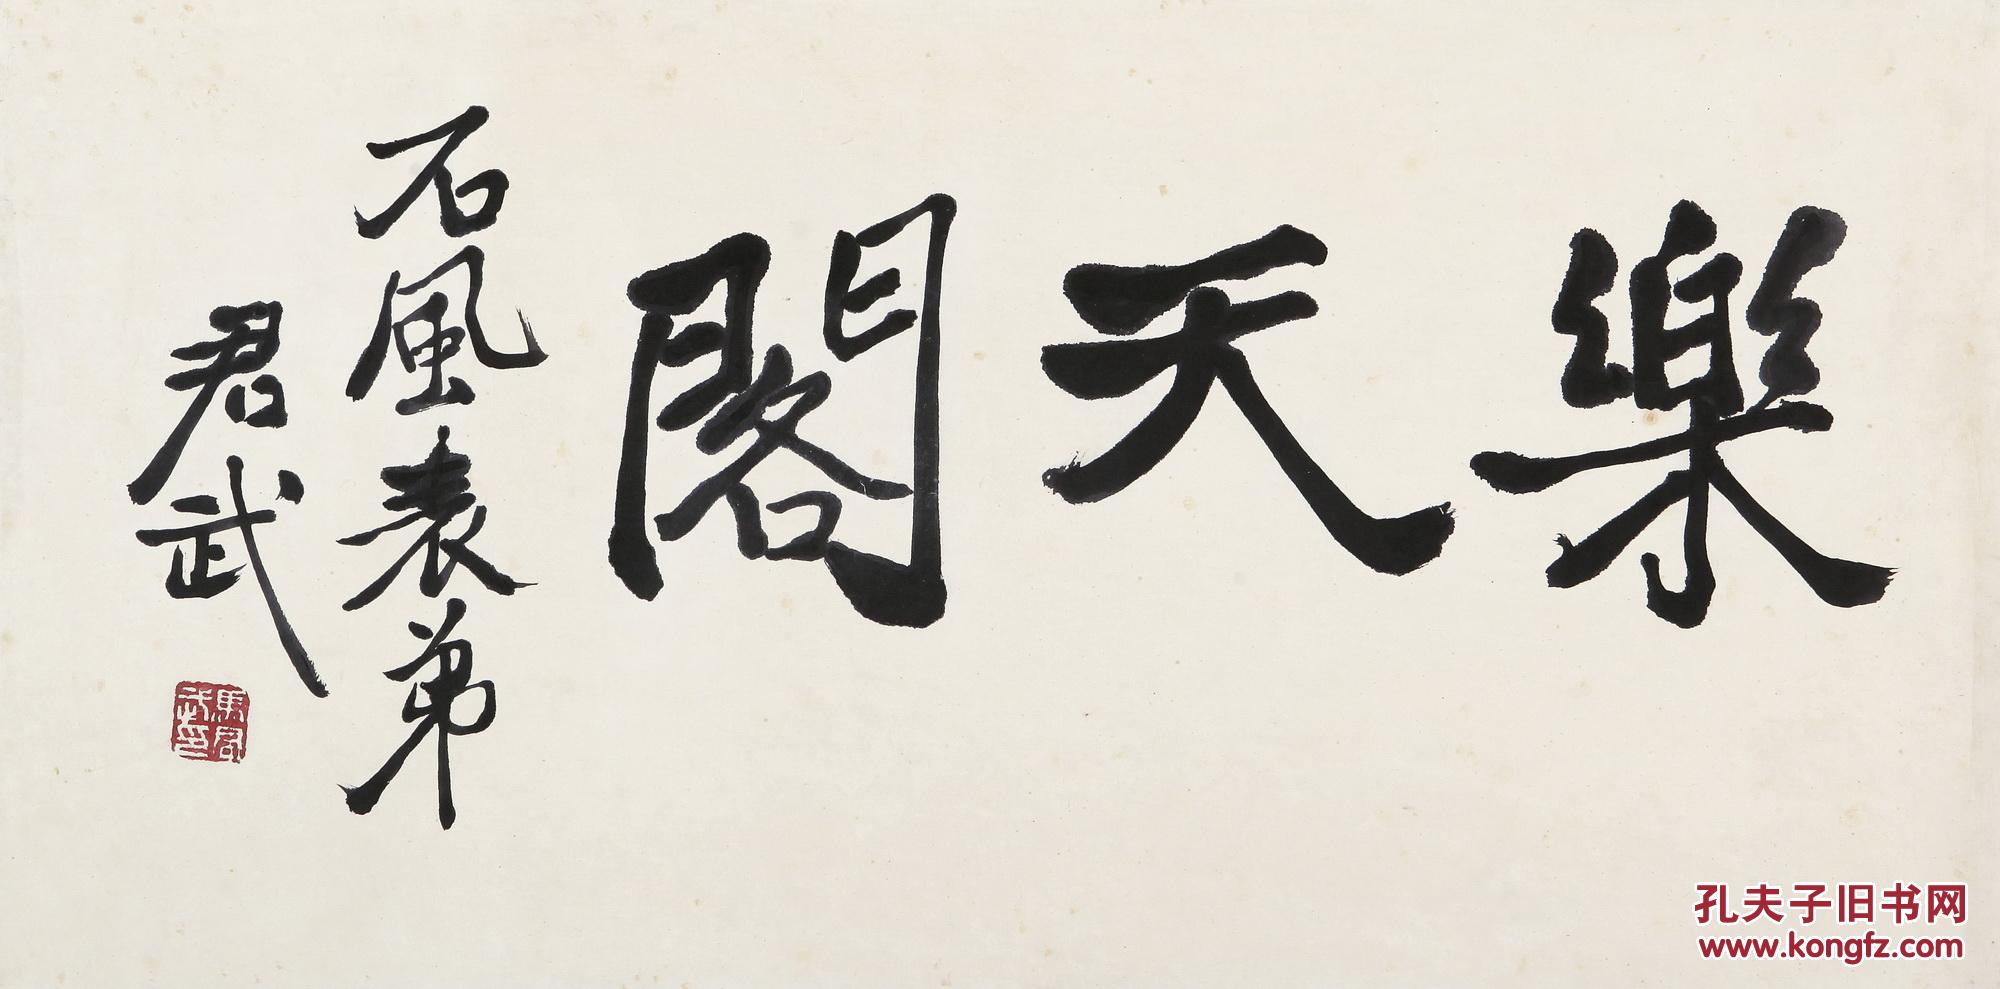 樂天閣
石風表弟
君武
馬君武印
孔夫子旧书网
www.kongfz.com